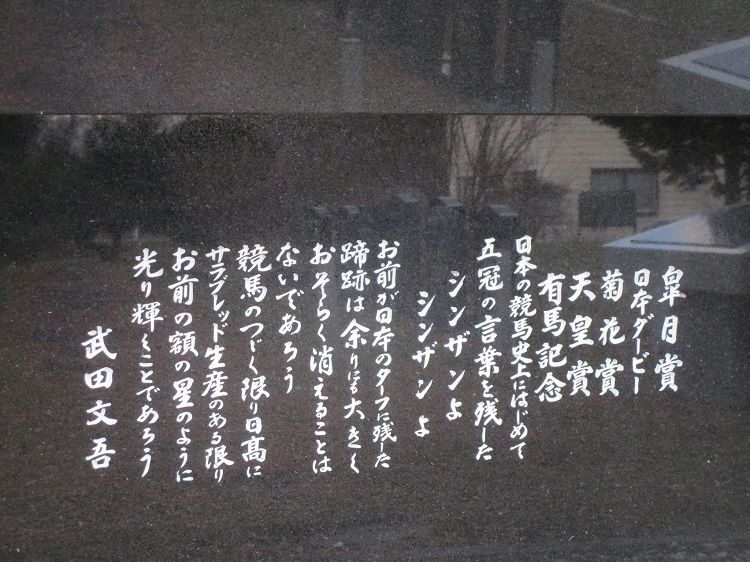 皐月賞
日本ダービー
菊花賞
天皇賞
有馬記念
日本の競馬史上にはじめて
五冠の言葉を残した
シンザンよ
シンザンよ
お前が日本のターフに残した
蹄跡は余りにも大きく
おそらく消えることは
ないであろう
競馬のつづく限り日高に
サラブレッド生産のある限り
お前の額の星のように
光り輝くことであろう
武田文吾